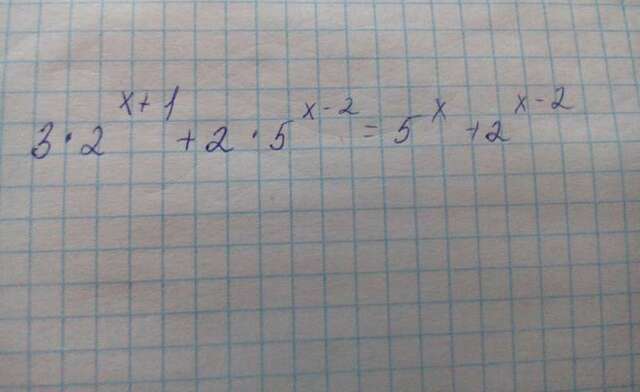 3 · 2^{x+1} + 2 · 5^{x-2} = 5^{x} + 2^{x-2}